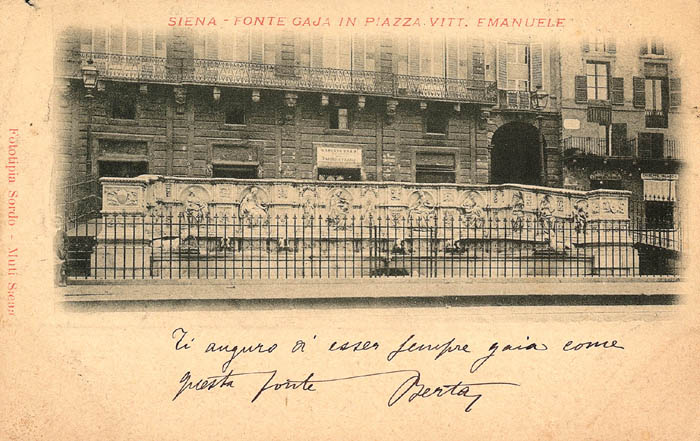 SIENA - FONTE GAJA IN PIAZZA VITT. EMANUELE
Fototipia Sordo-Muti Siena
Ti auguro di esser sempre gaia come
questa fonte Berta